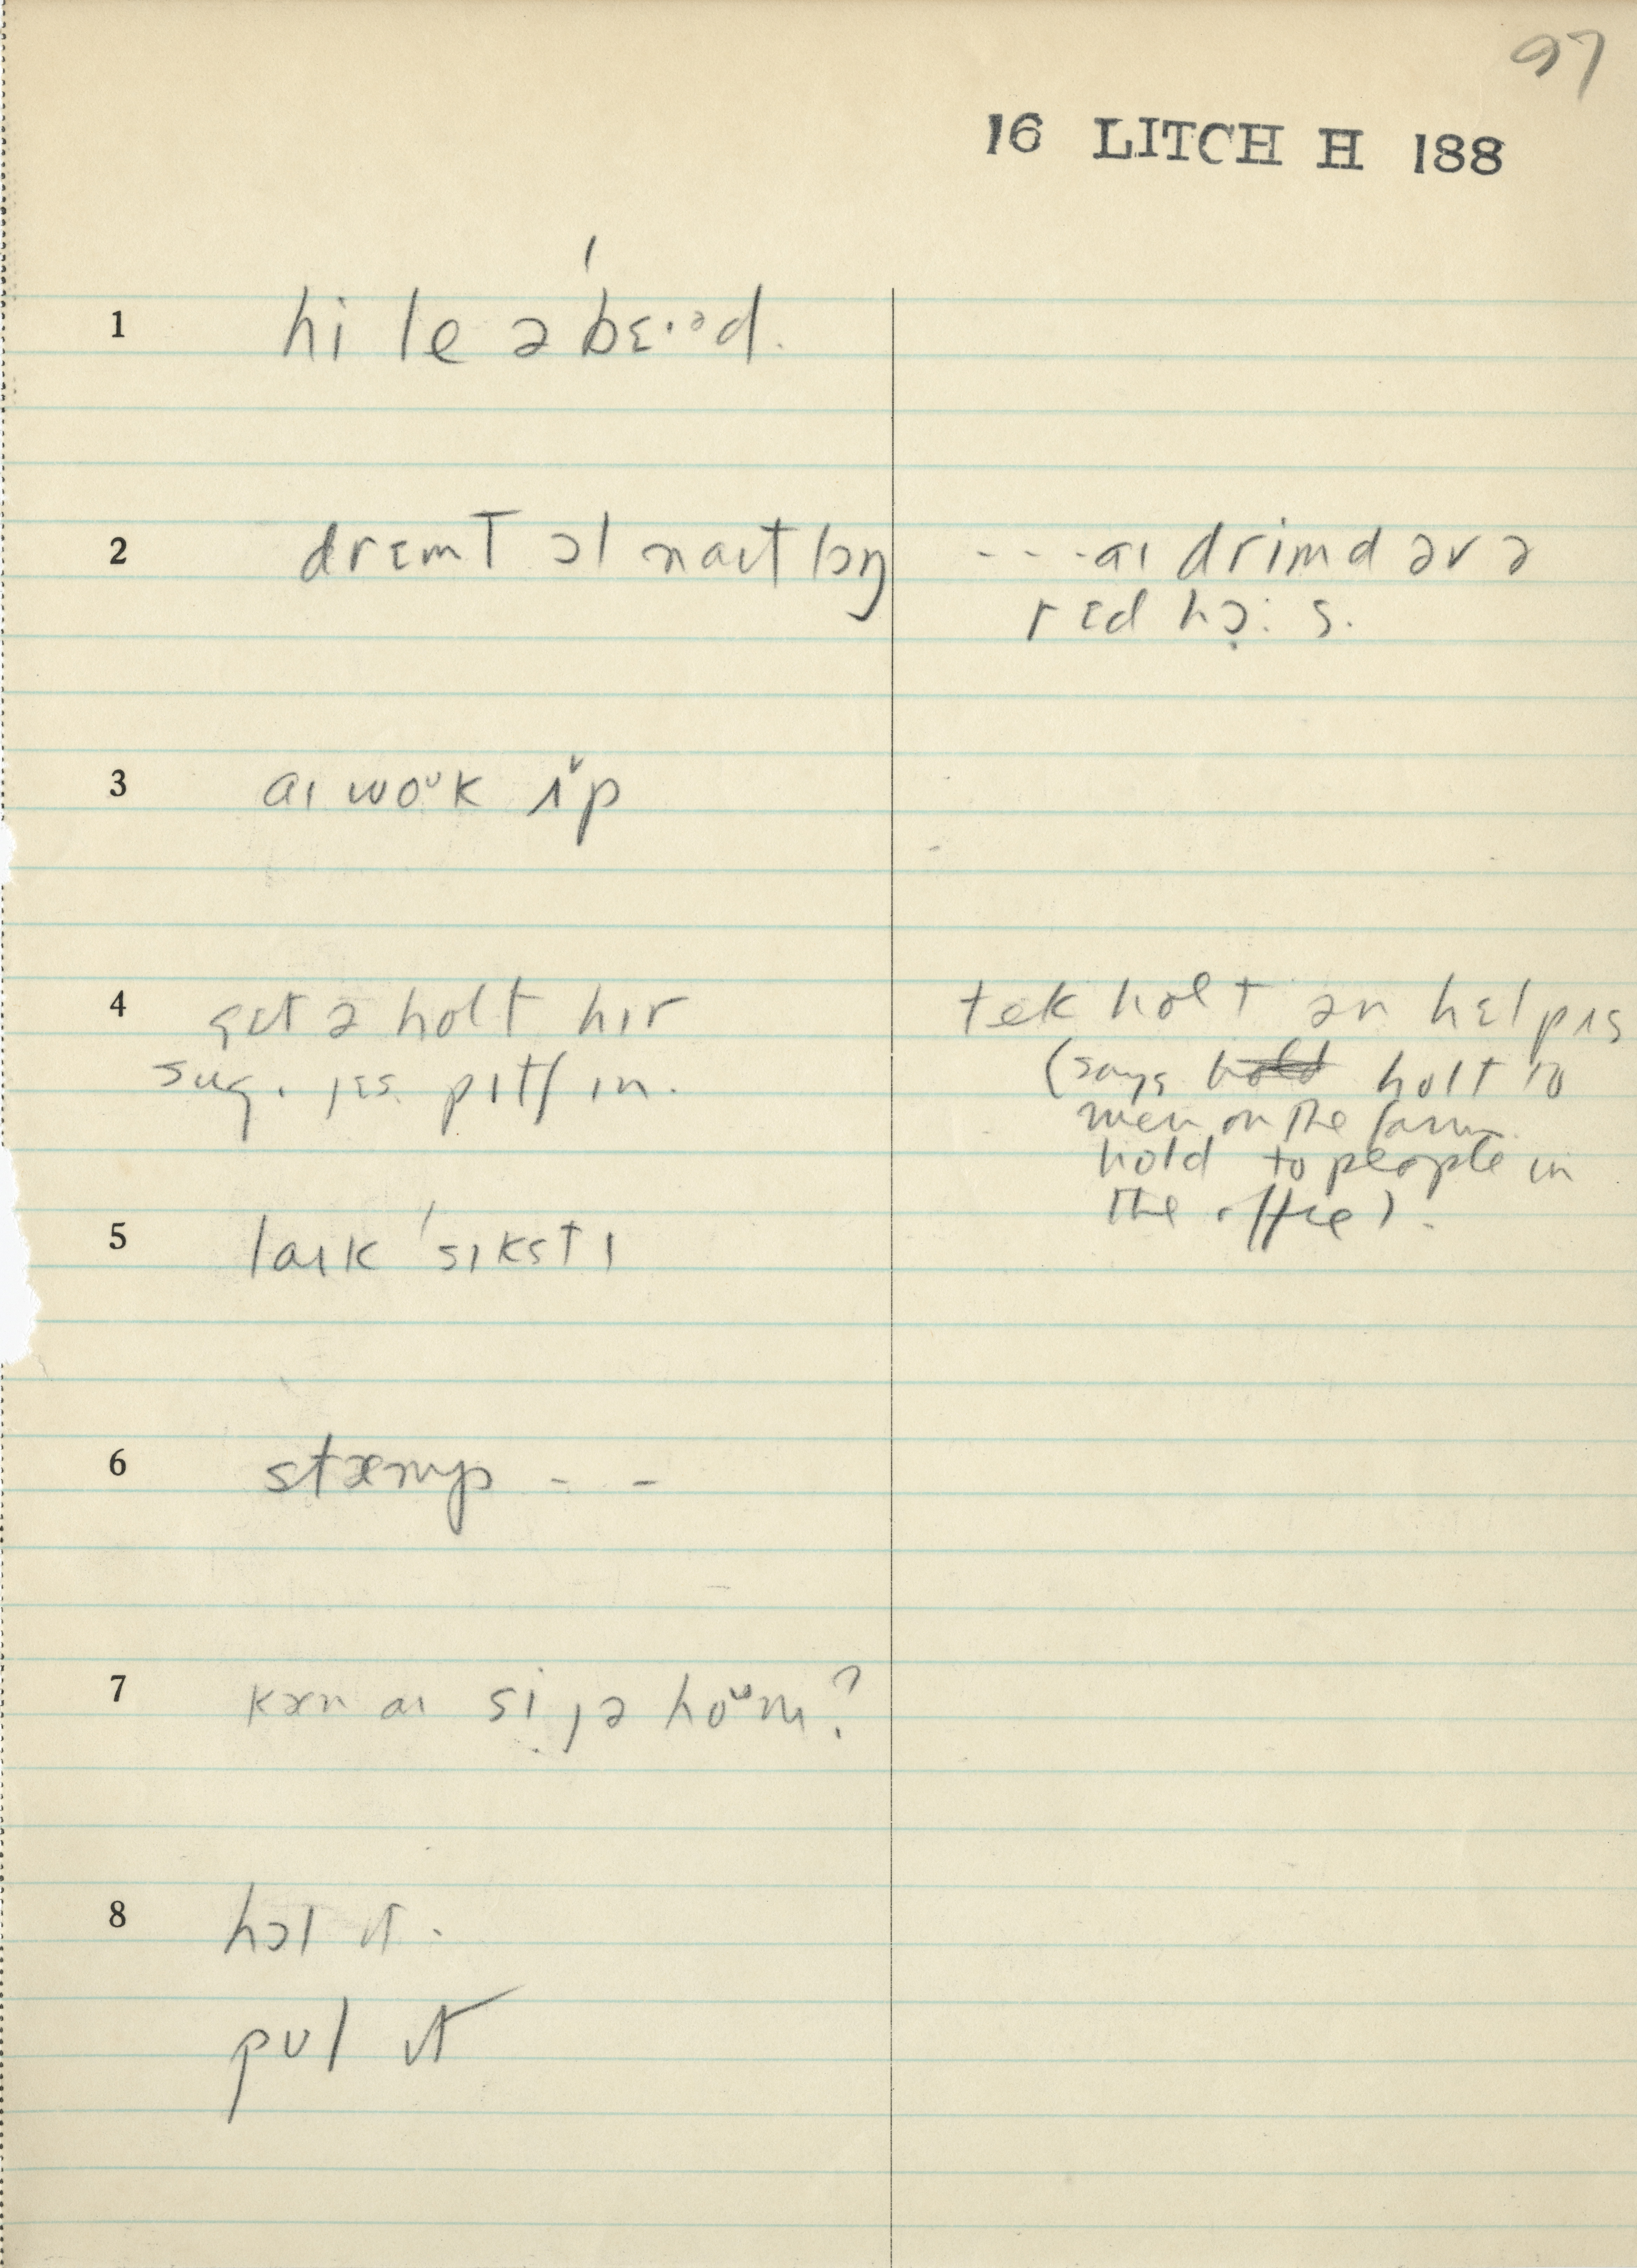 97
16 LITCH H 188
1 hi le ə bɛ·ᵊd.
2 drɛmt ɔl naɪt lɔŋ
- - - aɪ drimd əv ə
rɛd hɔ̣: s.
3 aɪ woᵘk ʌ̌p
4 gɛt ə holt hɪr
sug. jɛs. pɪtʃ ɪn.
tek holt ən hɛlp ʌs
(says hold holt to
men on the farm.
hold to people in
the office).
5 laɪk 'sɪkstɪ
6 stæmp - -
7 kæn aɪ si jə hoᵘm?
8 hɔl ɪt.
pʊl ɪt